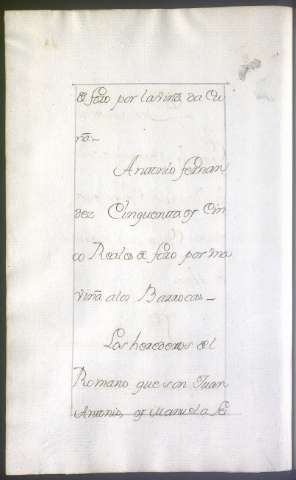 de foro por la viña da Cu
ra.-
Antonio Fernan
dez Cinquenta y Cin
co Reales de foro por una
viña alos Barrocas -
Los herederos del
Romano que son Juan
Antonio, y Manuela Fe